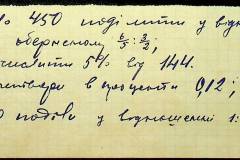 450 поділити у від
оберненому 6/5 : 3/2;
числити 5% від 144.
творити в проценти 0,12;
поділи у відношенні 1: